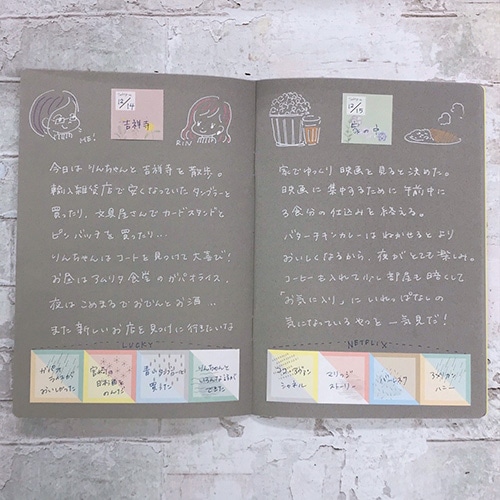 12/14
吉祥寺
ME!
RIN
今日は りんちゃんと 吉祥寺を 散歩。
輸入雑貨店で安くなっていた タンブラーと
買ったり、文具屋さんで カードスタンドと
ピンバッヂを 買ったり…
りんちゃんは コートを見つけて 大喜び!
お昼は アムリタ食堂の ガパオライス、
夜は こめまるで おでんとお酒..
また新しいお店を 見つけに 行きたいな
LUCKY
ガパオ
ライスが
おいしかった
宮崎の
日本酒を
のんだ
りんちゃんと
いろんな話が
できた
12/15
家の中
家でゆっくり 映画を 見ると 決めた。
映画に 集中するために 午前中に
3食分の 仕込みを 終える。
バターチキンカレーは ねかせると より
おいしくなるから、夜がとても 楽しみ。
コーヒーも 入れて 少し 部屋も 暗くして
「お気に入り」に いれっぱなしの
気になっている やつを 一気見だ!
NETFLIX
ココ・アヴァン
シャネル
マリッジ
ストーリー
バーレスク
アメリカン
ハニー